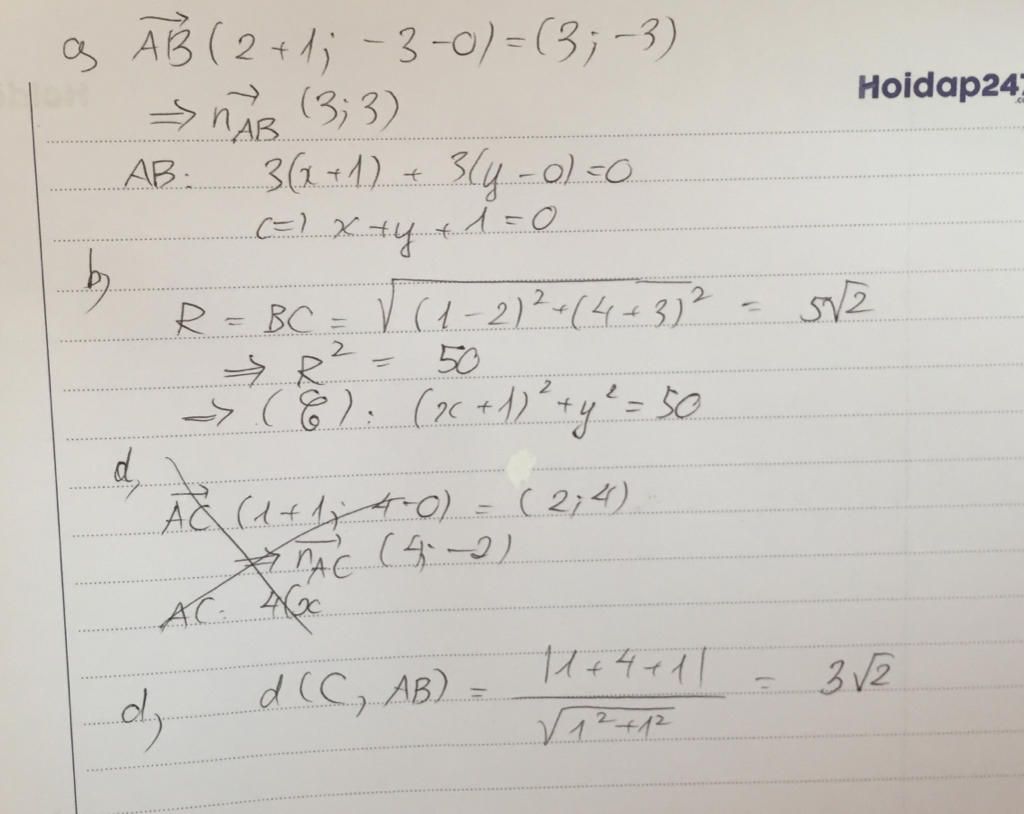 a, $\overrightarrow{AB}$ (2+1; -3-0) = (3; -3)
Hoidap247
.co
⇒ $\overrightarrow{n_{AB}}$ (3; 3)
AB: 3(x+1) + 3(y-0) = 0
<=> x+y+1=0
b,
R = BC = $\sqrt{(1-2)^2+(4+3)^2}$ = 5√2
⇒ R² = 50
⇒ (𝒞): (x+1)² + y² = 50
d,
$\overrightarrow{AC}$ (1+1; 4-0) = (2; 4)
⇒ $\overrightarrow{n_{AC}}$ (4; -2)
AC: 4(x
d, d(C, AB) = $\frac{|1+4+1|}{\sqrt{1^2+1^2}}$ = 3√2